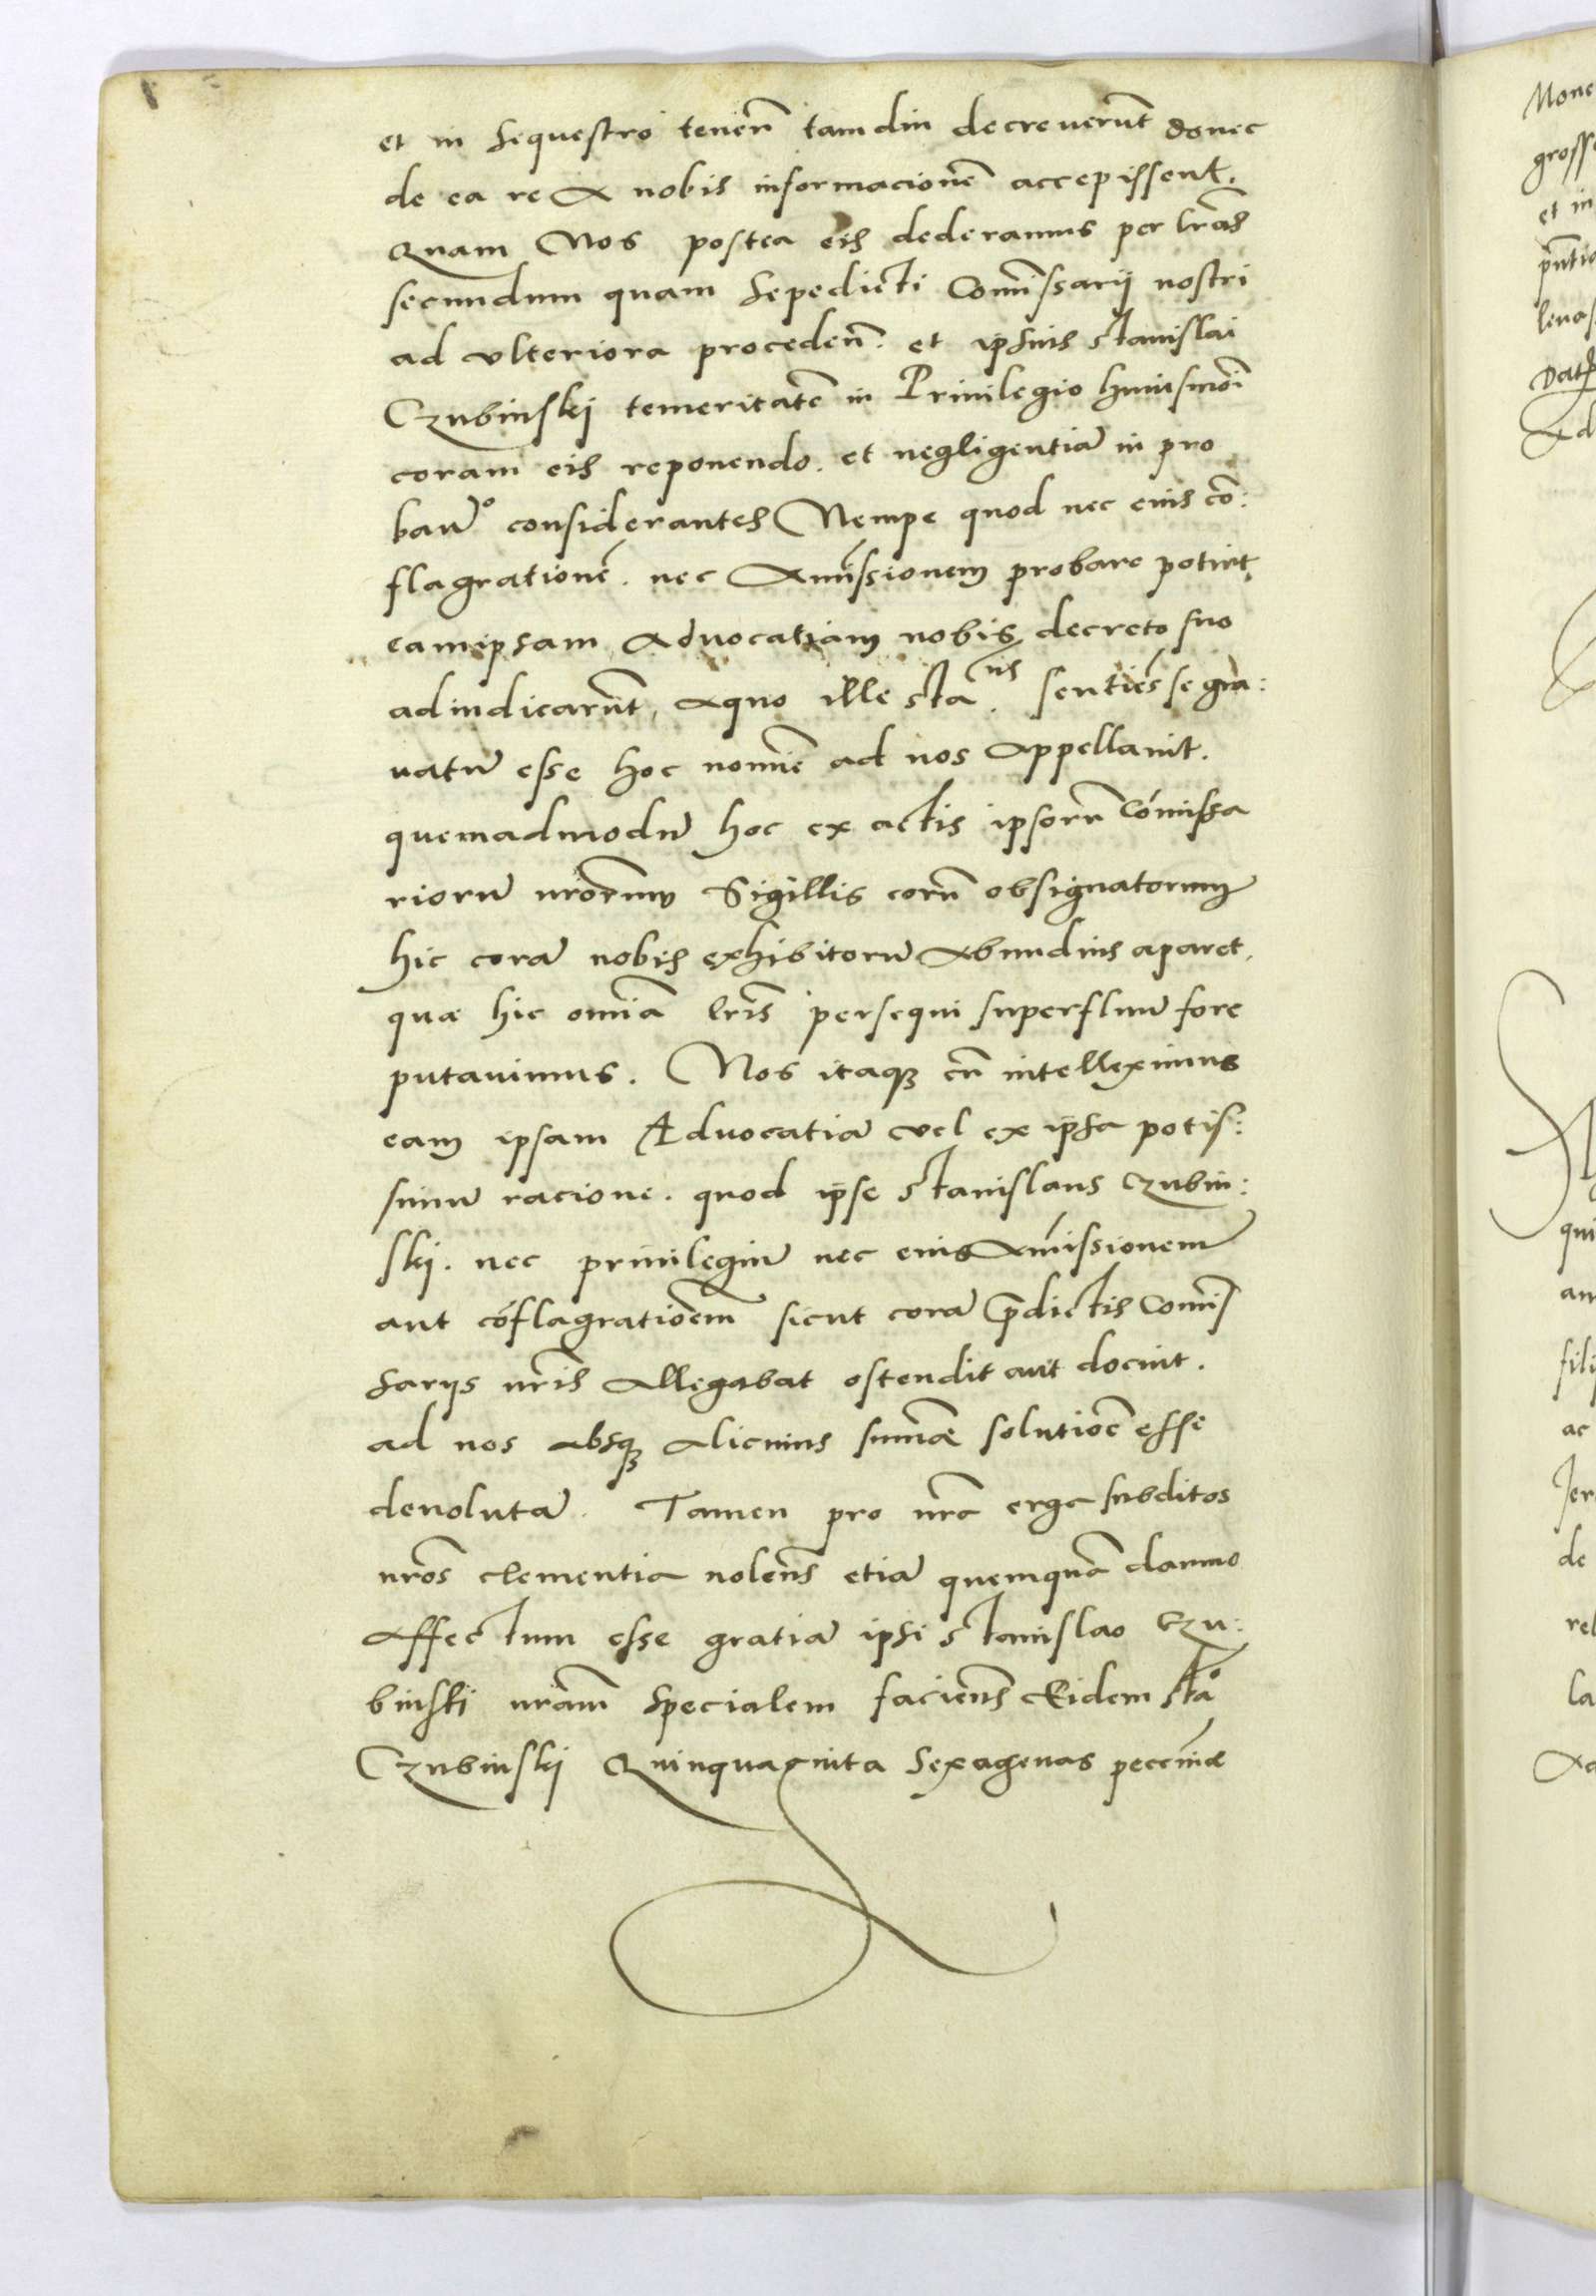 et in sequestro tenen̄ tamdiu decreverūt donec
de ea re a nobis informacionē accepissent.
Quam Nos postea eis dederamus per lrās
secundum quam sepedicti Comissarij nostri
ad ulteriora proceden̄. et ipsius Stanislai
Czubinskj temeritatē in Privilegio huiusmōi
coram eis reponendo. et negligentiā in pro
baūo considerantes Nempe quod nec eius cō:
flagrationē. nec Amissionem probare potuit,
eamipsam Advocatiam nobis decreto suo
adiudicarūt, aquo ille Staus. sentiēs se gra:
vatū esse hoc nomīe ad nos Appellavit.
quemadmodū hoc ex actis ipsorū Cōmissa
riorū nrōrum Sigillis eorū obsignatorum
hic corā nobis exhibitorū Abundius aparet,
quæ hic omīa lrīs persequi superfluū fore
putavimus. Nos itaq3 cū intelleximus
eam ipsam Advocatiā vel ex ipsa potis:
simū racione. quod ipse Stanislaus Czubin:
skj. nec privilegiū nec eius Amissionem
aut cōflagratiōem sicut corā p̄dictis Comis
sarijs nrīs Allegabat ostendit aut docuit.
ad nos absq3 Alicuius sum̄æ solutiōe esse
devolutā. Tamen pro nrā erga subditos
nrōs clementia nolen̄s etiā quemquā damno
Affectum esse gratiā ipsi Stanislao Czu:
binski nrām specialem facien̄s Eidem Stāo
Czubinskj Quinquaginta Sexagenas pecuniæ
Mone
et in
Dat
Ad
qui
fili
ac
de
la